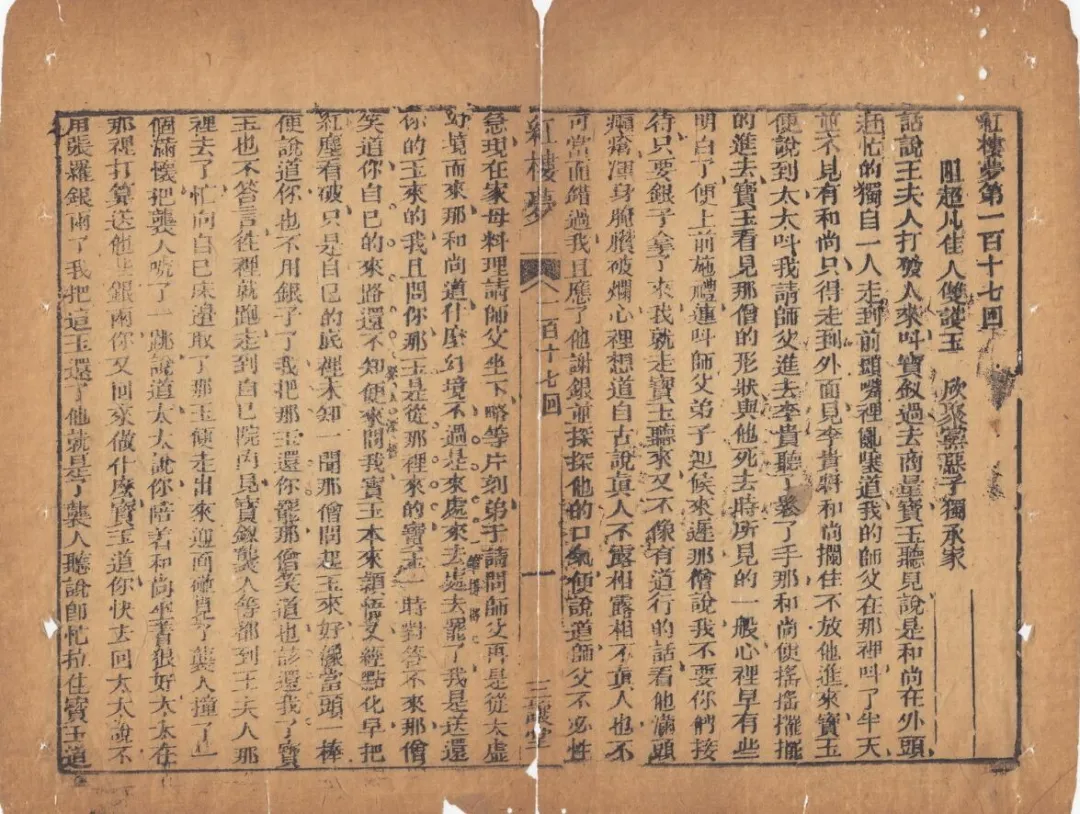 紅樓夢第一百十七回
阻超凡佳人雙護玉　欣聚黨惡子獨承家
話說王夫人打發人來叫寶釵過去商量寶玉聽見說是和尚在外頭
赶忙的獨自一人走到前頭嘴裡亂嚷道我的師父在那裡叫了半天
並不見有和尚只得走到外面見李貴將和尚攔住不放他進來寶玉
便說到太太叫我請師父進去李貴聽了鬆了手那和尚便搖搖擺擺
的進去寶玉看見那僧的形狀與他死去時所見的一般心裡早有些
明白了便上前施禮連叫師父弟子迎候來遲那僧說我不要你們接
待只要銀子拿了來我就走寶玉聽來又不像有道行的話看他滿頭
癩瘡渾身腌臢破爛心裡想道自古說真人不露相露相不真人也不
可當面錯過我且應了他謝銀並探探他的口氣便說道師父不必性
紅樓夢　一百十七回　一　三讓堂
急現在家母料理請師父坐下略等片刻弟子請問師父再是從太虛
幻境而來那和尚道什麼幻境不過是來處來去處去罷了我是送還
你的玉來的我且問你那玉是從那裡來的寶玉一時對答不來那僧
笑道你自己的來路還不知便來問我寶玉本來穎悟又經點化早把
紅塵看破只是自己的底裡未知一聞那僧問起玉來好像當頭一棒
便說道你也不用銀子了我把那玉還你罷那僧笑道也該還我了寶
玉也不答言往裡就跑走到自己院內見寶釵襲人等都到王夫人那
裡去了忙向自己床邊取了那玉便走出來迎面碰見了襲人撞了一
個滿懷把襲人唬了一跳說道太太說你陪着和尚坐着狠好太太在
那裡打算送他些銀兩你又回來做什麼寶玉道你快去回太太說不
用張羅銀兩了我把這玉還了他就是了襲人聽說即忙拉住寶玉道